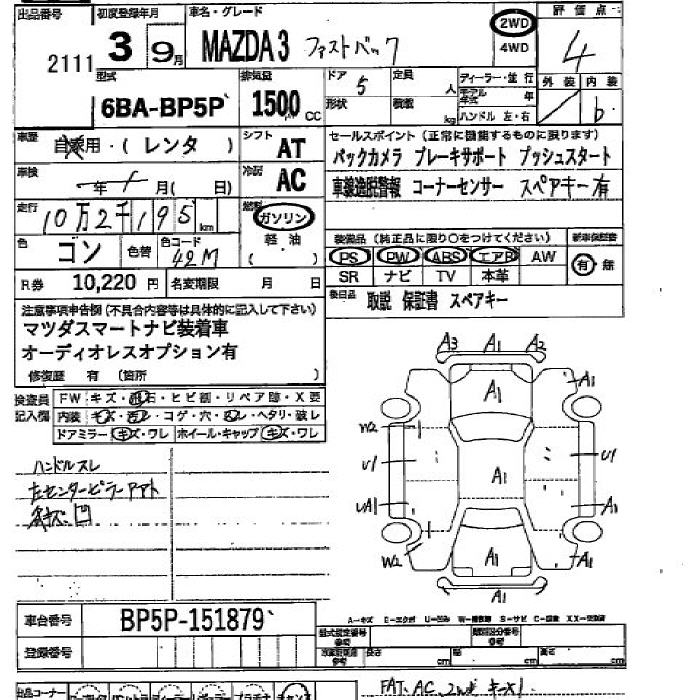 出品番号 初度登録年月 車名・グレード 評価点
2111 3 9月 MAZDA3 ファストバック 2WD 4WD 4
型式 排気量 ドア 定員 ディーラー・並行 外装 内装
6BA-BP5P 1500 CC 5 人 モデル年式 年 b
形状 積載 kg ハンドル 左・右
車歴 自家用・(レンタ) シフト AT
セールスポイント (正常に機能するものに限ります)
バックカメラ ブレーキサポート プッシュスタート
車検 年 月( 日) 冷房 AC
車線逸脱警報 コーナーセンサー スペアキー有
走行 10万2千195 km 燃料 ガソリン 軽・油 ( )
色 ゴン 色替 色コード 42M
装備品 (純正品に限り○をつけてください) 新車保証書
PS PW ABS エアB AW 有・無
SR ナビ TV 本革
R券 10,220 円 名変期限 月 日
後日品 取説 保証書 スペアキー
注意事項申告欄(不具合内容等は具体的に記入して下さい)
マツダスマートナビ装着車
オーディオレスオプション有
修復歴 有 (箇所 )
検査員記入欄 FW キズ・飛石・ヒビ割・リペア跡・X要
内装 キズ・汚レ・コゲ・穴・スレ・ヘタリ・破レ
ドアミラー キズ・ワレ ホイール・キャップ キズ・ワレ
ハンドルスレ
左センターピラーアマト
A3 A1 A2
A1 A1
W2
U1 A1 U1
UA1 A1
W2 A1 A1
A1
車台番号 BP5P-151879
登録番号
A-キズ E-エクボ U-凹み
型式指定番号 参考 類別区分番号 参考
長さ cm 幅 cm 高さ cm
出品コーナー
FAT、AC、2nd キー×1